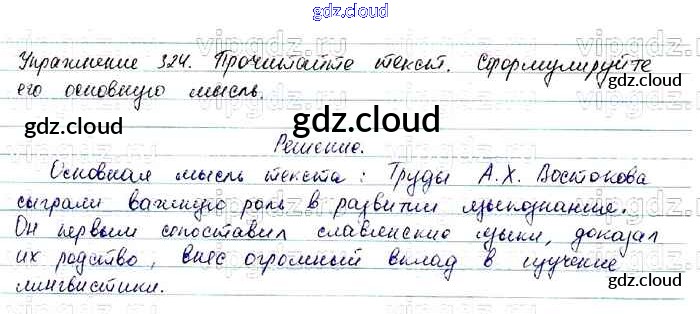 gdz.cloud
Упражнение 324. Прочитайте текст. Сформулируйте
его основную мысль.
gdz.cloud
gdz.cloud
gdz.cloud
gdz.cloud
Решение.
Основная мысль текста: Труды А.Х. Востокова
сыграли важную роль в развитии языкознания.
Он первым сопоставил славянские языки, доказал
их родство, внёс огромный вклад в изучение
лингвистики.
gdz.cloud
gdz.cloud
gdz.cloud